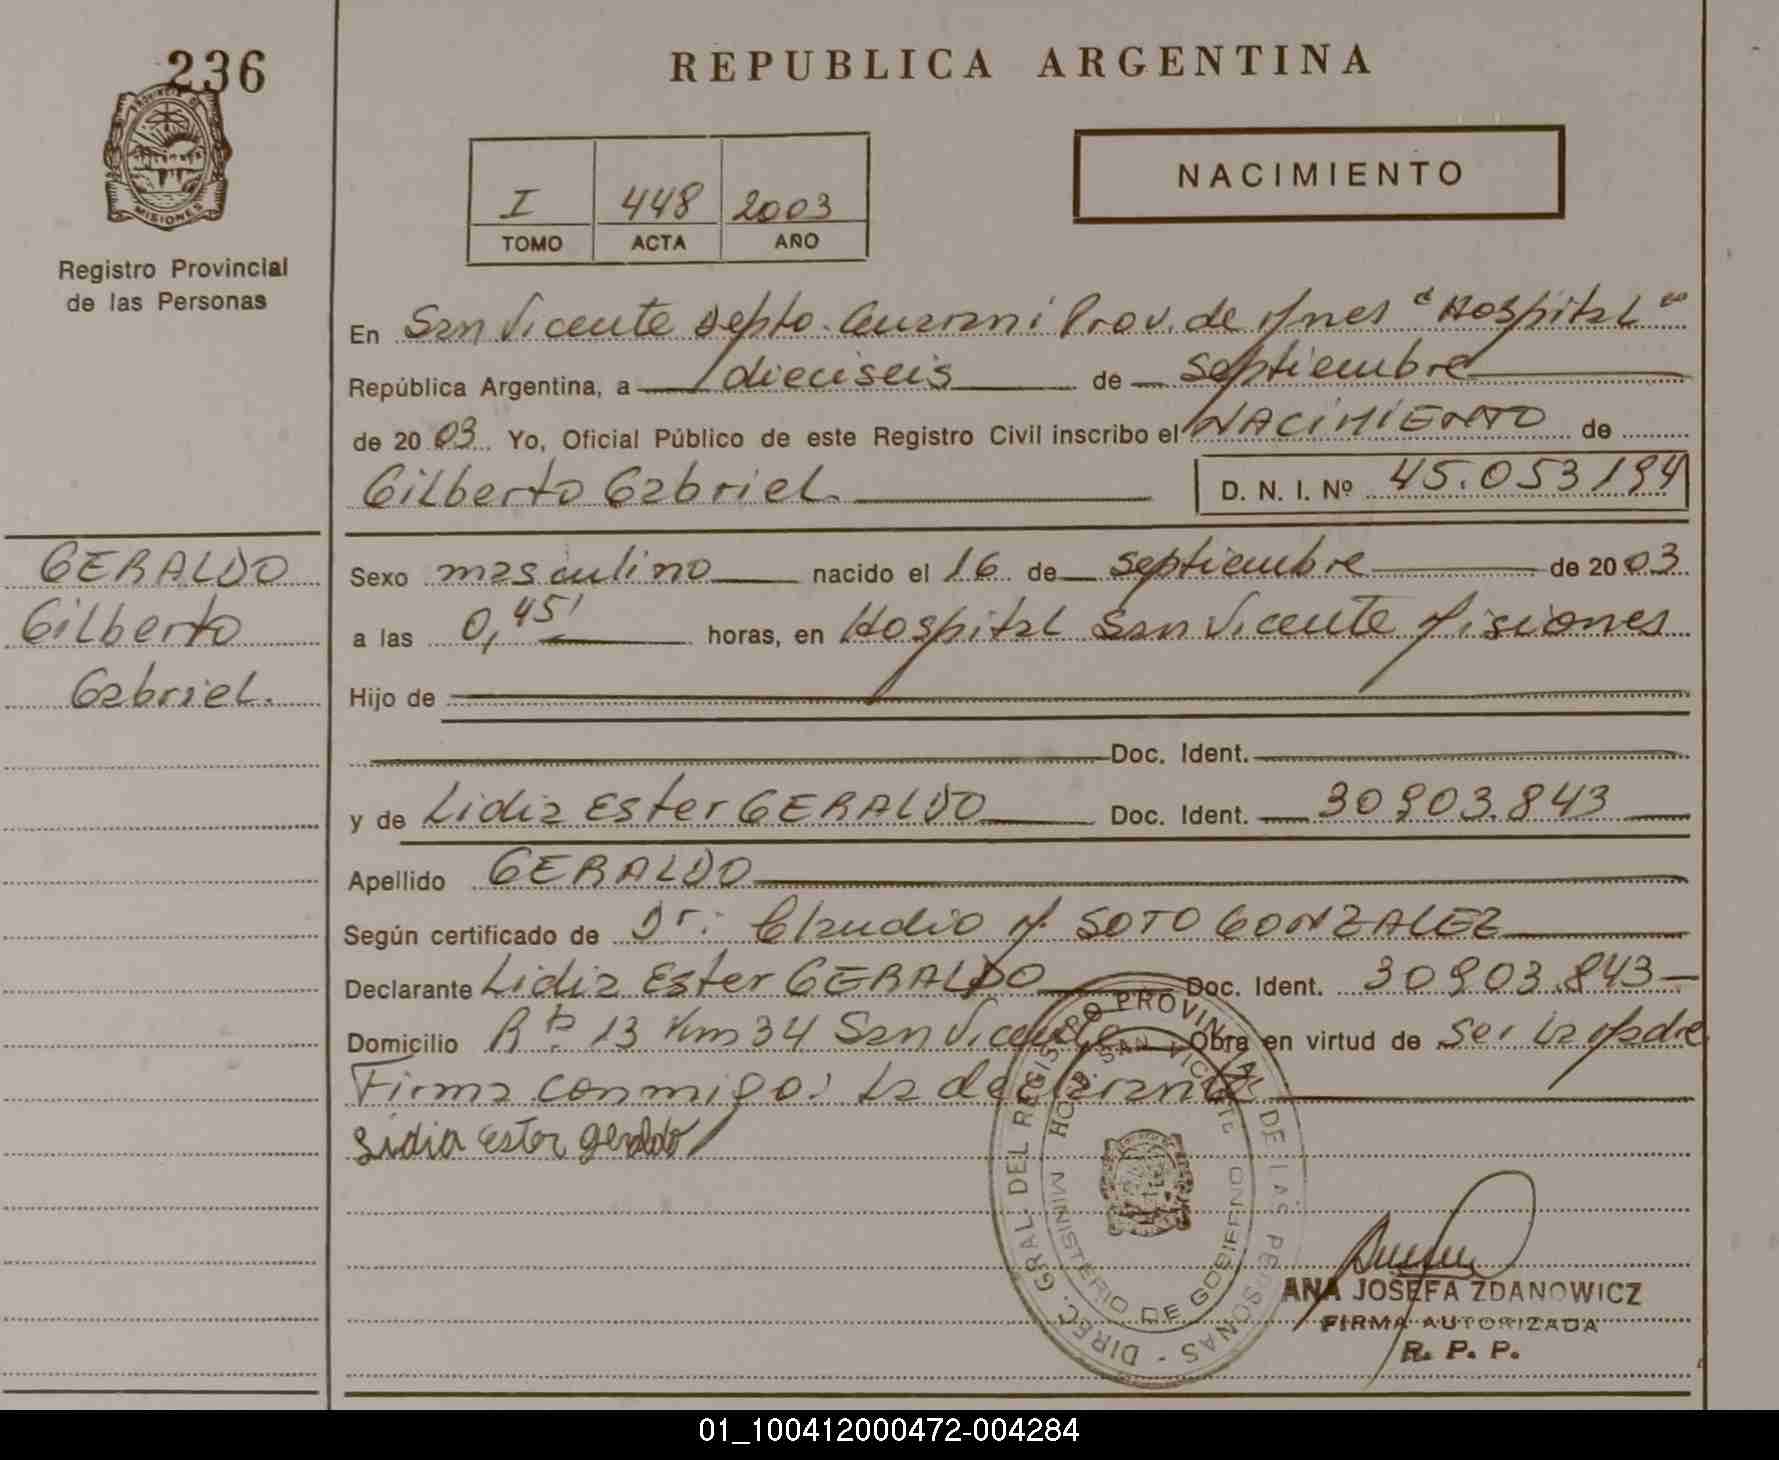 236
REPUBLICA ARGENTINA
PROVINCIA DE
MISIONES
Registro Provincial
de las Personas
I 448 2003
TOMO ACTA AÑO
NACIMIENTO
En San Vicente Depto. Guarani Prov. de Mnes "Hospital"
República Argentina, a dieciseis de septiembre
de 2003 Yo, Oficial Público de este Registro Civil inscribo el NACIMIENTO de
Gilberto Gabriel. D. N. I. Nº 45.053194
GERALDO
Gilberto
Gabriel.
Sexo masculino nacido el 16 de septiembre de 2003
a las 0,45' horas, en Hospital San Vicente Misiones
Hijo de
Doc. Ident.
y de Lidia Ester GERALDO Doc. Ident. 30903.843
Apellido GERALDO
Según certificado de Dr. Claudio M. SOTO GONZALEZ
Declarante Lidia Ester GERALDO Doc. Ident. 30903.843
Domicilio Rta 13 Km 34 San Vicente Obra en virtud de ser la Madre
Firma conmigo: La declarante
Lidia Ester Geraldo
DIREC. GRAL. DEL REGISTRO PROVINCIAL DE LAS PERSONAS -
HOSP. SAN VICENTE
MINISTERIO DE GOBIERNO
ANA JOSEFA ZDANOWICZ
FIRMA AUTORIZADA
R. P. P.
01_100412000472-004284